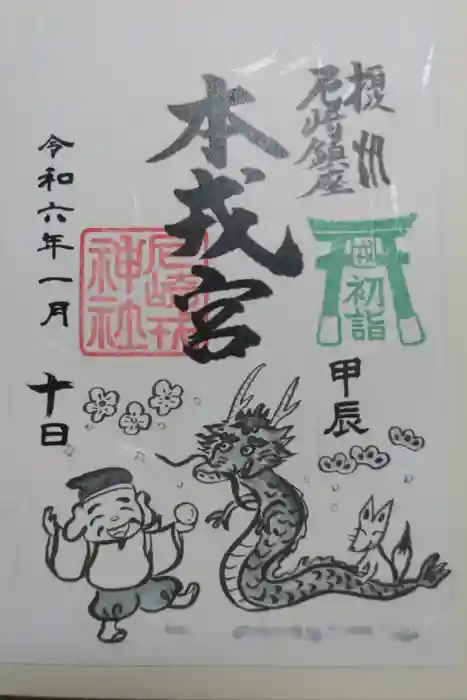 摂州
尼崎鎮座
初詣
甲辰
本戎宮
尼崎戎
神社
令和六年一月
十日